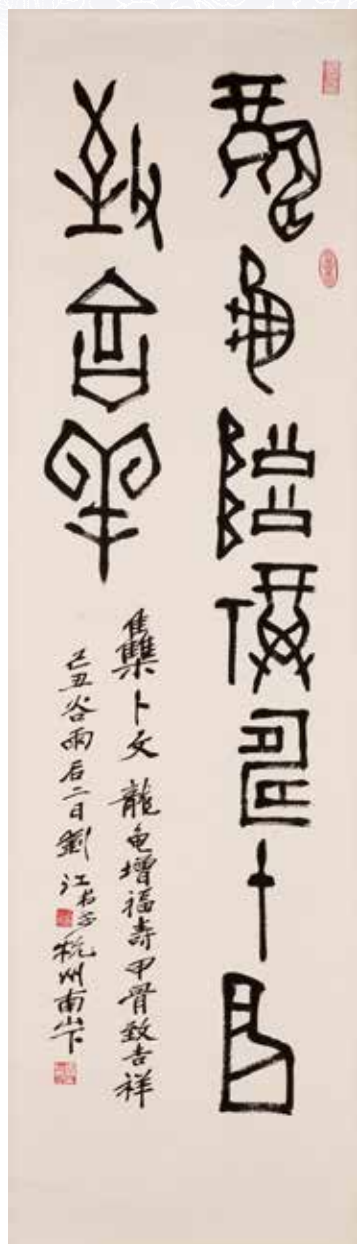 龍龜增福壽甲骨
致吉羊
雧卜文 龍龟增福壽甲骨致吉祥
己丑谷雨后二日劉江书於杭州南山下